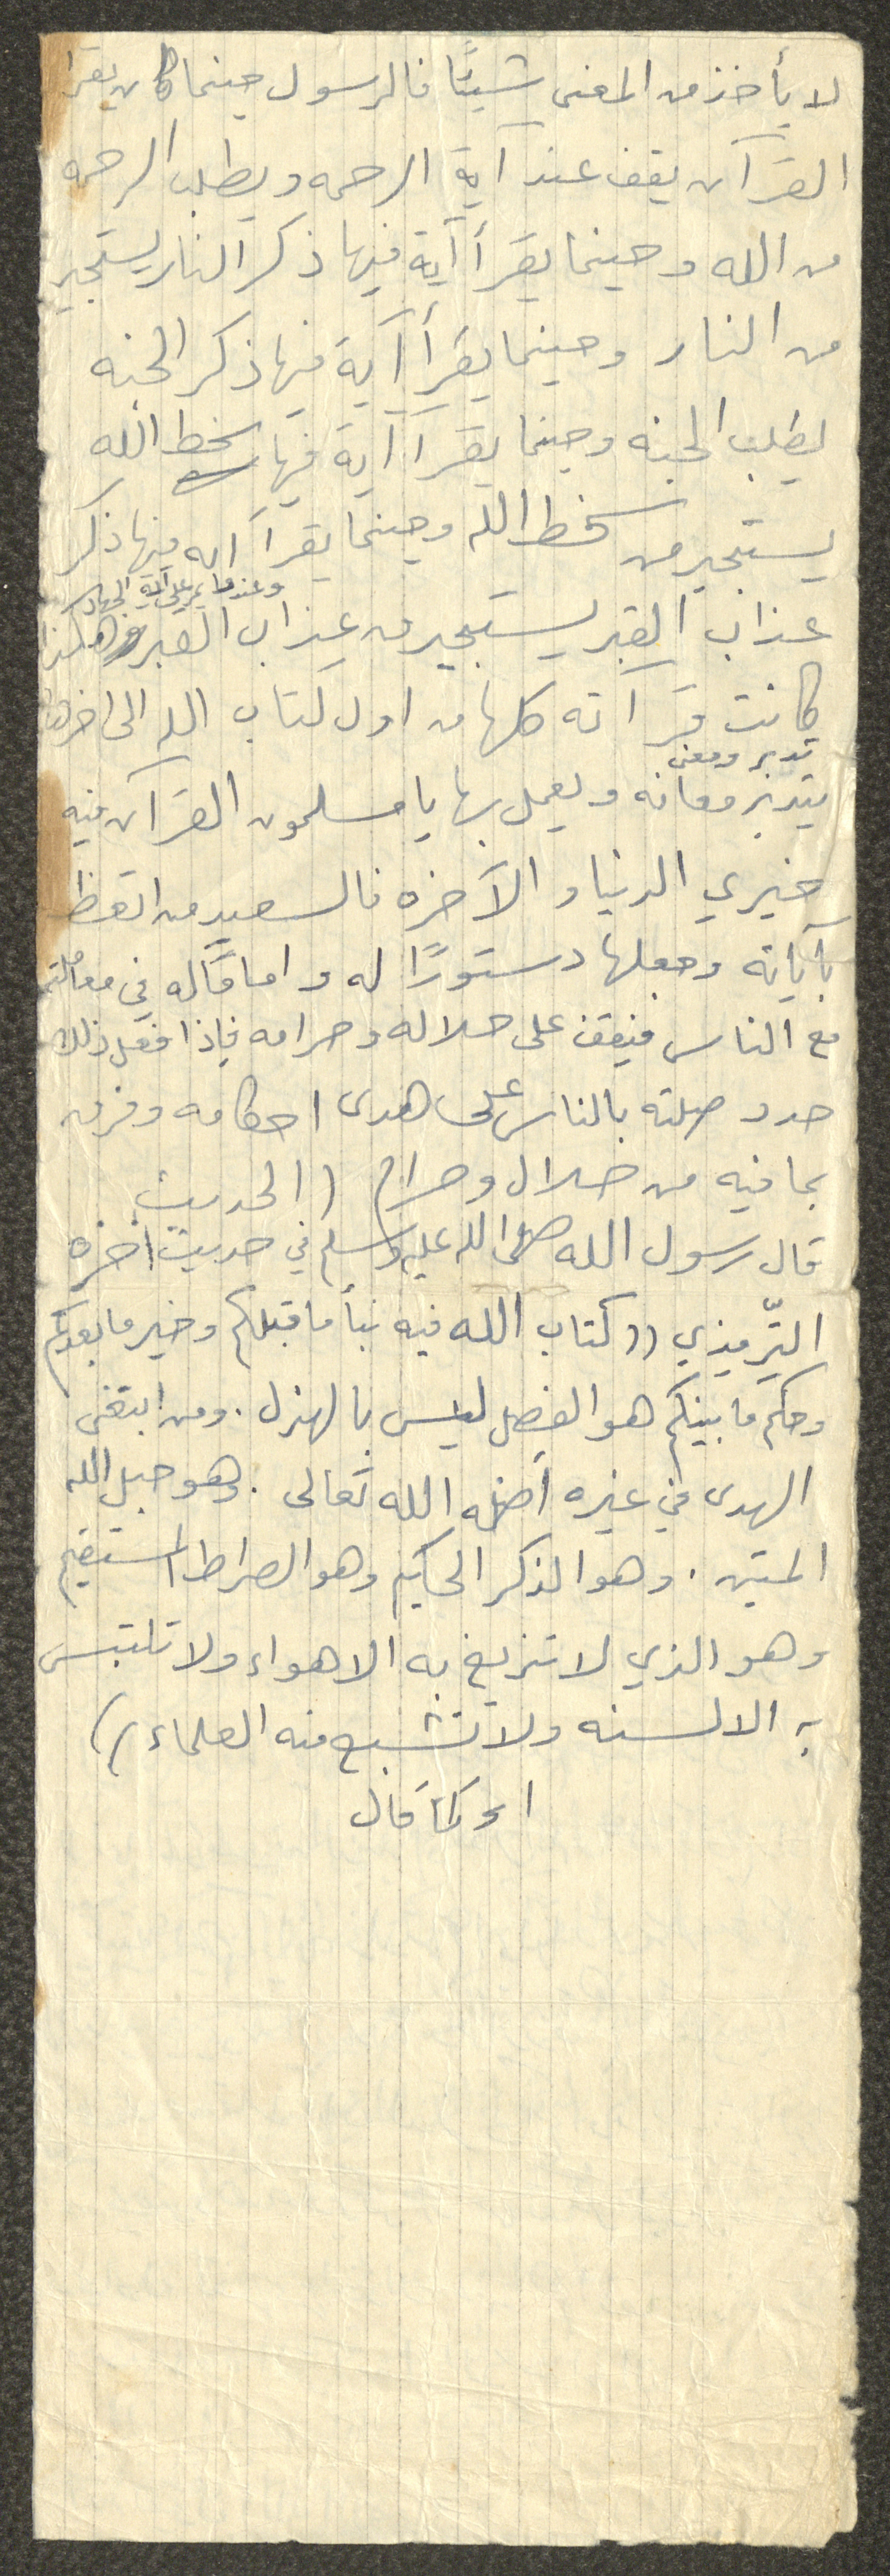 لا يأخذ من المعنى شيئًا فالرسول حينما كان يقرا
القرآن يقف عند آية الرحمه ويطلب الرحمه
من الله وحينما يقرأ آية فيها ذكر النار يستجير
من النار وحينما يقرأ آية فيها ذكر الجنه
يطلب الجنه وحينما يقرآ آية فيها سخط الله
يستجير من سخط الله وحينما يقرآ آيه فيها ذكر
وعندما يمر على آية الجهاد
عذاب القبر يستجير من عذاب القبر وهكذا
كانت قرآته كلها من اول كتاب الله الى اخرها
تدبر ومعنى
يتدبر معانه ويعمل بها يا مسلمون القرآن فيه
خيري الدنيا والآخره فالسعيد من اتعظ
بآياته وجعلها دستورًا له واما قاله في معاملته
مع الناس فيقف على حلاله وحرامه فإذا فعل ذلك
حدد صلته بالناس على هدى احكامه وفرق
بما فيه من حلال وحرام (الحديث
قال رسول الله صلى الله عليه وسلم في حديث اخرجه
الترّميذي ((كتاب الله فيه نبأ ما قبلكم وخير ما بعدكم
وحكم ما بينكم هو الفصل ليس بالهزل . ومن ابتغى
الهدى في غيره أضله الله تعالى . وهو حبل الله
المتين . وهو الذكر الحكيم وهو الصراط المستقيم
وهو الذي لا تزيغ به الاهواء ولا تلتبس
به الالسنه ولا تشبع منه العلماء))
او كما قال